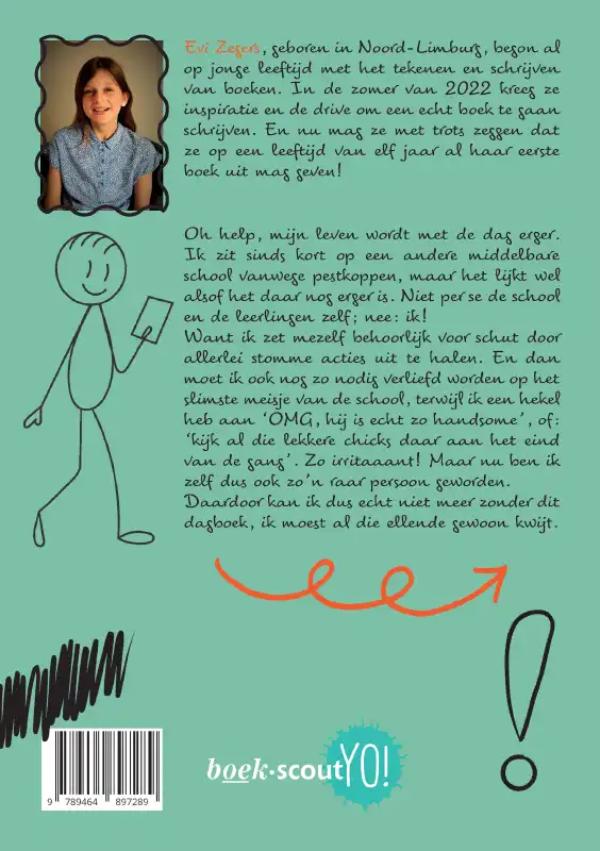 Evi Zegers, geboren in Noord-Limburg, begon al
op jonge leeftijd met het tekenen en schrijven
van boeken. In de zomer van 2022 kreeg ze
inspiratie en de drive om een echt boek te gaan
schrijven. En nu mag ze met trots zeggen dat
ze op een leeftijd van elf jaar al haar eerste
boek uit mag geven!
Oh help, mijn leven wordt met de dag erger.
Ik zit sinds kort op een andere middelbare
school vanwege pestkoppen, maar het lijkt wel
alsof het daar nog erger is. Niet per se de school
en de leerlingen zelf; nee: ik!
Want ik zet mezelf behoorlijk voor schut door
allerlei stomme acties uit te halen. En dan
moet ik ook nog zo nodig verliefd worden op het
slimste meisje van de school, terwijl ik een hekel
heb aan ‘OMG, hij is echt zo handsome’, of:
‘kijk al die lekkere chicks daar aan het eind
van de gang’. Zo irritaaant! Maar nu ben ik
zelf dus ook zo’n raar persoon geworden.
Daardoor kan ik dus echt niet meer zonder dit
dagboek, ik moest al die ellende gewoon kwijt.
!
boek·scout YO!
9 789464 897289